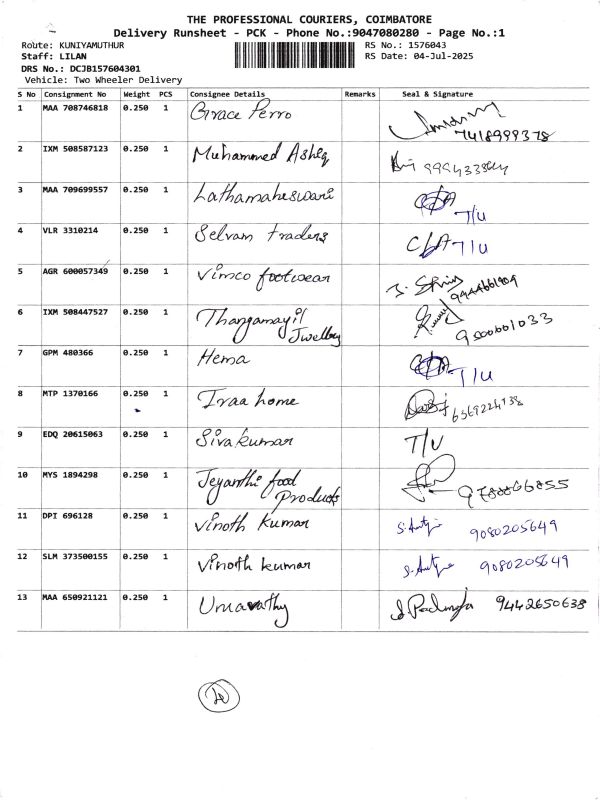 THE PROFESSIONAL COURIERS, COIMBATORE
Delivery Runsheet - PCK - Phone No.:9047080280 - Page No.:1
Route: KUNIYAMUTHUR RS No.: 1576043
Staff: LILAN RS Date: 04-Jul-2025
DRS No.: DCJB157604301
Vehicle: Two Wheeler Delivery
S No Consignment No Weight PCS Consignee Details Remarks Seal & Signature
1 MAA 708746818 0.250 1 Grace Perro
7418999378
2 IXM 508587123 0.250 1 Muhammed Ashiq
3 MAA 709699557 0.250 1 Lathamaheswari
T/U
4 VLR 3310214 0.250 1 Selvam traders C/A T/U
5 AGR 600057349 0.250 1 Vimco footwear
6 IXM 508447527 0.250 1 Thangamayil
Jwellery 9500601033
7 GPM 480366 0.250 1 Hema
T/U
8 MTP 1370166 0.250 1 Iraa home
6369224938
9 EDQ 20615063 0.250 1 Sivakumar T/U
10 MYS 1894298 0.250 1 Jeyanthi food
Products
11 DPI 696128 0.250 1 Vinoth Kumar 9080205649
12 SLM 373500155 0.250 1 Vinoth kumar 9080205649
13 MAA 650921121 0.250 1 Umavathy 9442650638